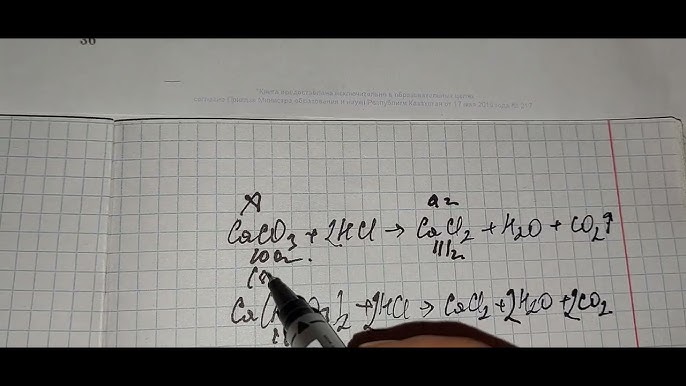 "Книга предоставлена исключительно в образовательных целях
согласно Приказа Министра образования и науки Республики Казахстан от 17 мая 2019 года № 217
x
CaCO3 + 2HCl → CaCl2 + H2O + CO2↑
100г 111г
+ 2HCl → CaCl2 + 2H2O + 2CO2